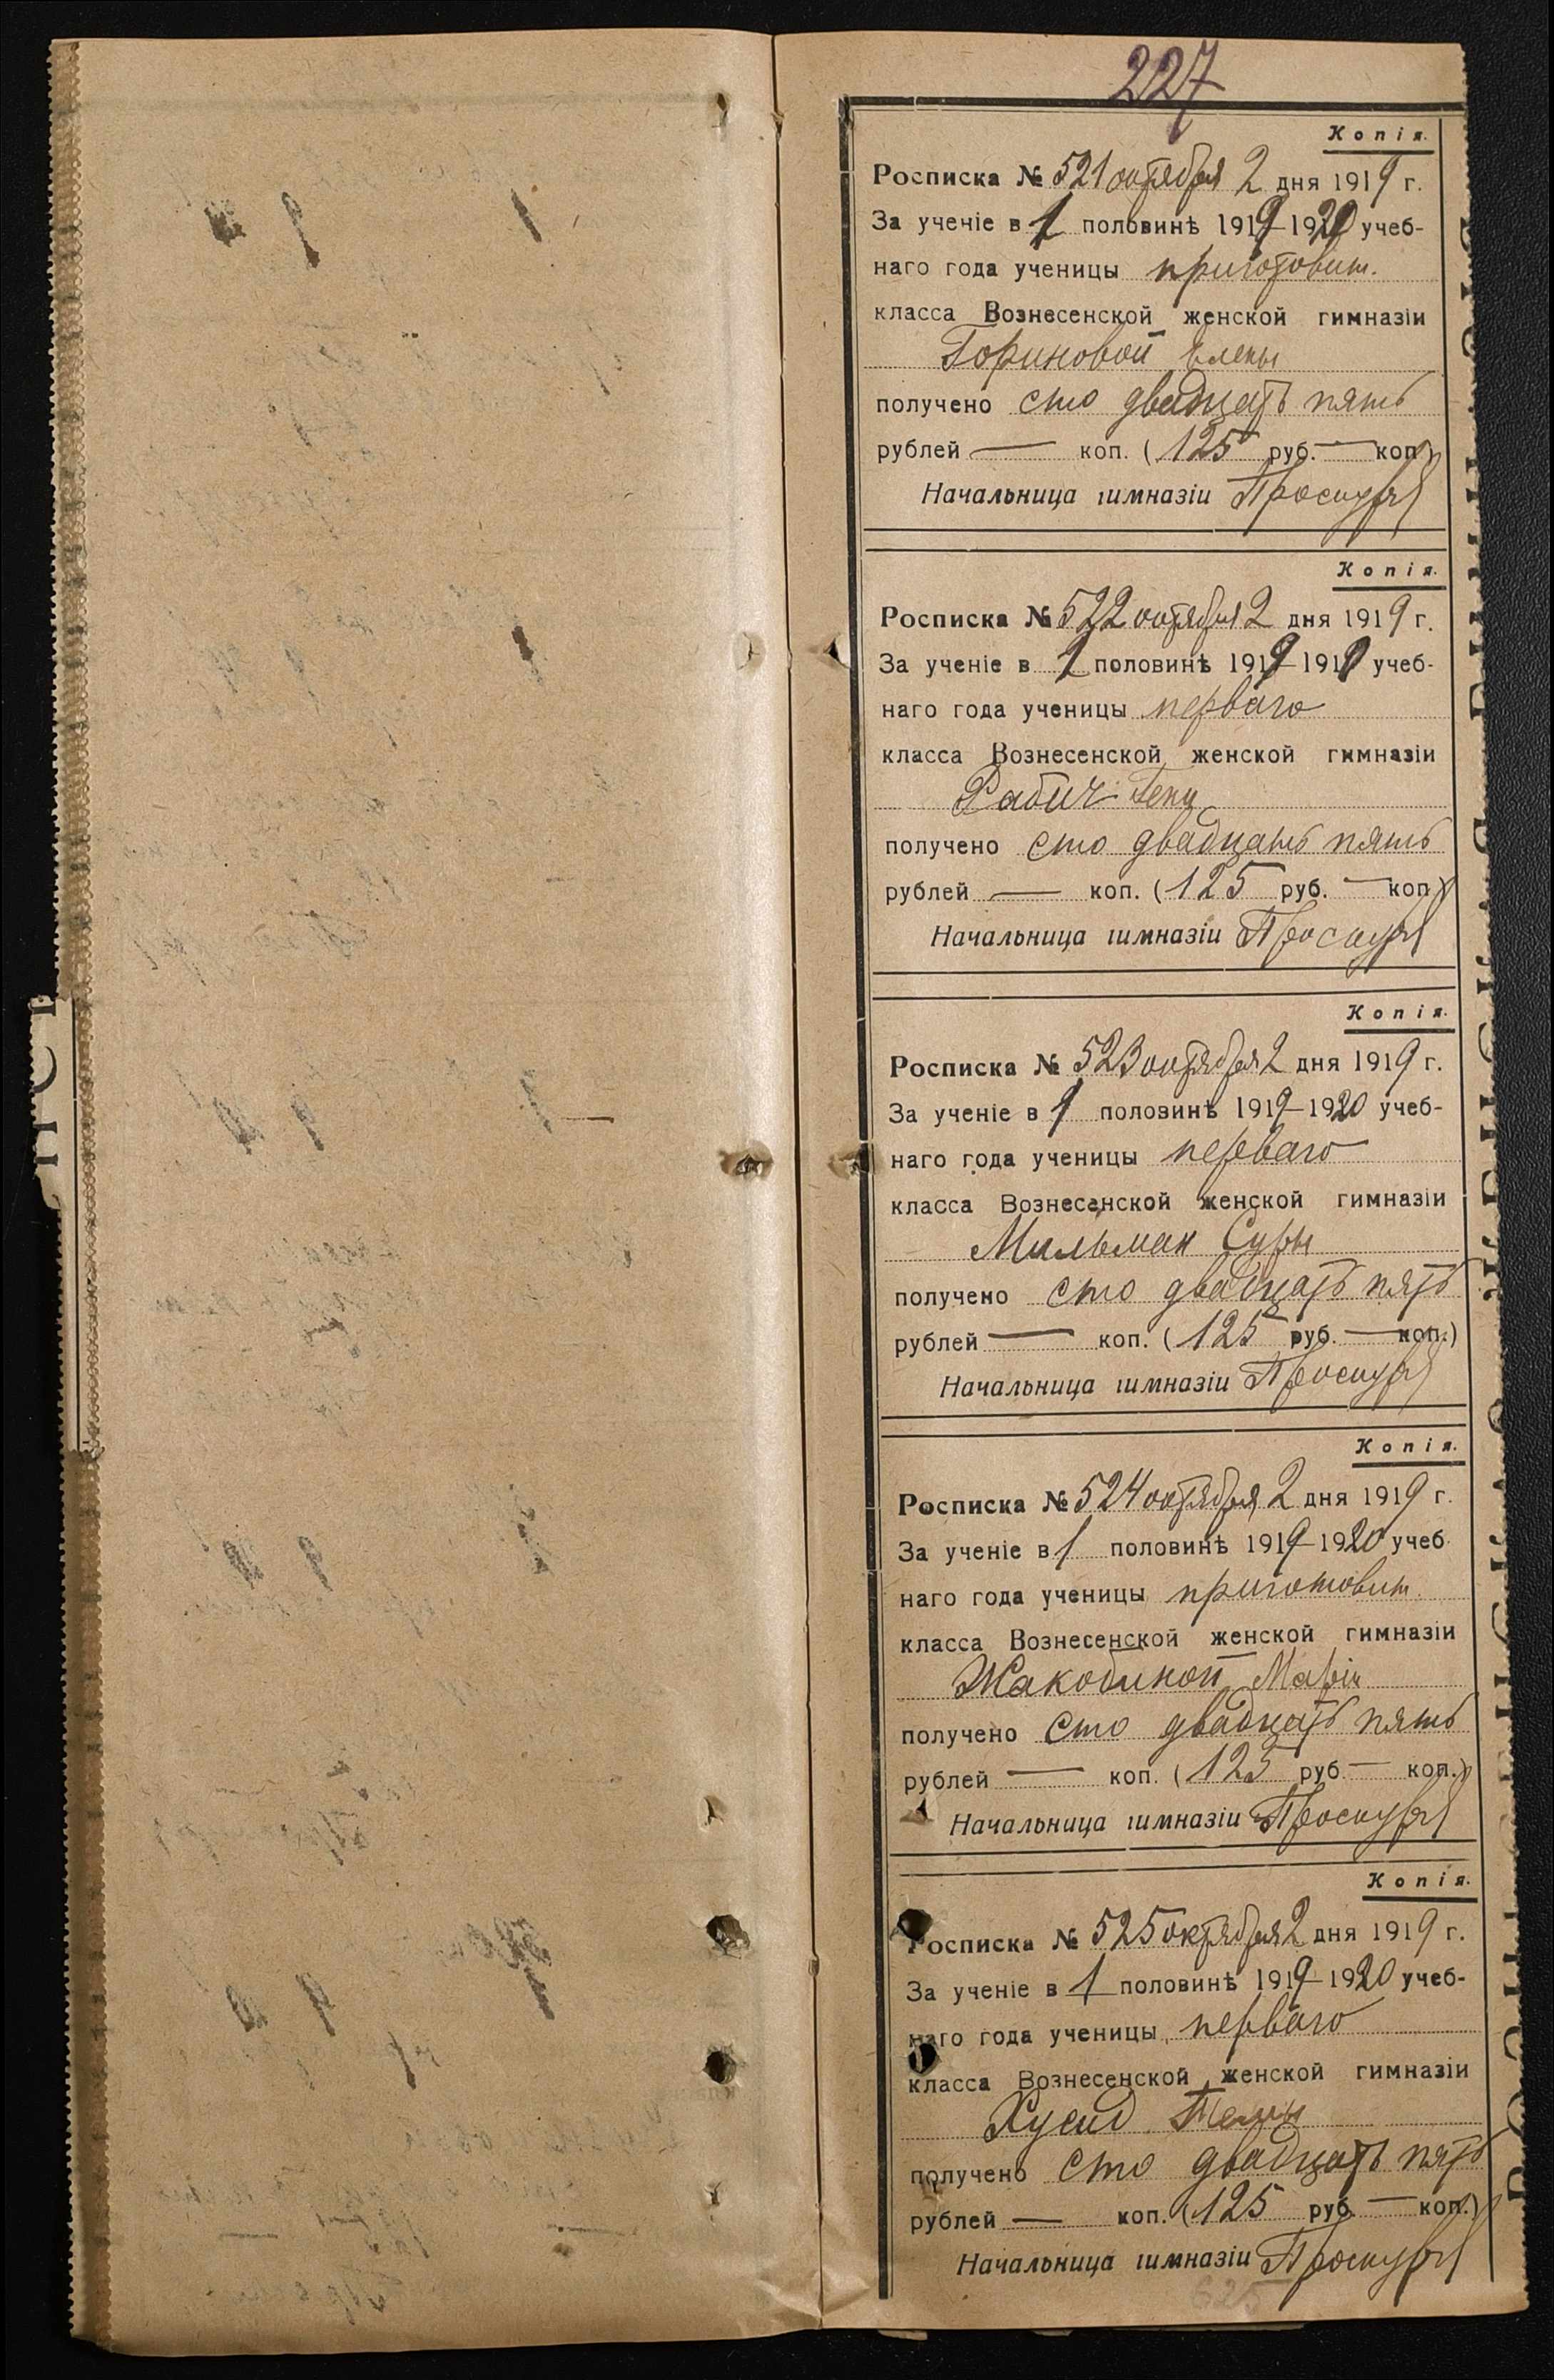 227
Копія.
Росписка № 521 октября 2 дня 1919 г.
За ученіе в 1 половинѣ 1919–1920 учеб-
наго года ученицы приготовит.
класса Вознесенской женской гимназіи
Гориновой Елены
получено сто двадцать пять
рублей — коп. (125 руб. — коп.)
Начальница гимназіи
Копія.
Росписка № 522 октября 2 дня 1919 г.
За ученіе в 1 половинѣ 1919–191 учеб-
наго года ученицы перваго
класса Вознесенской женской гимназіи
Рабич
получено сто двадцать пять
рублей — коп. (125 руб. — коп.)
Начальница гимназіи
Копія.
Росписка № 523 октября 2 дня 1919 г.
За ученіе в 1 половинѣ 1919–1920 учеб-
наго года ученицы перваго
класса Вознесенской женской гимназіи
Мильман Суры
получено сто двадцать пять
рублей — коп. (125 руб. — коп.)
Начальница гимназіи
Копія.
Росписка № 524 октября 2 дня 1919 г.
За ученіе в 1 половинѣ 1919–1920 учеб
наго года ученицы приготовит.
класса Вознесенской женской гимназіи
Жакобиной Маріи
получено сто двадцать пять
рублей — коп. (125 руб — коп.)
Начальница гимназіи
Копія.
Росписка № 525 октября 2 дня 1919 г.
За ученіе в 1 половинѣ 1919–1920 учеб-
наго года ученицы перваго
класса Вознесенской женской гимназіи
Хусид
получено сто двадцать пять
рублей — коп. (125 руб. — коп.)
Начальница гимназіи
625